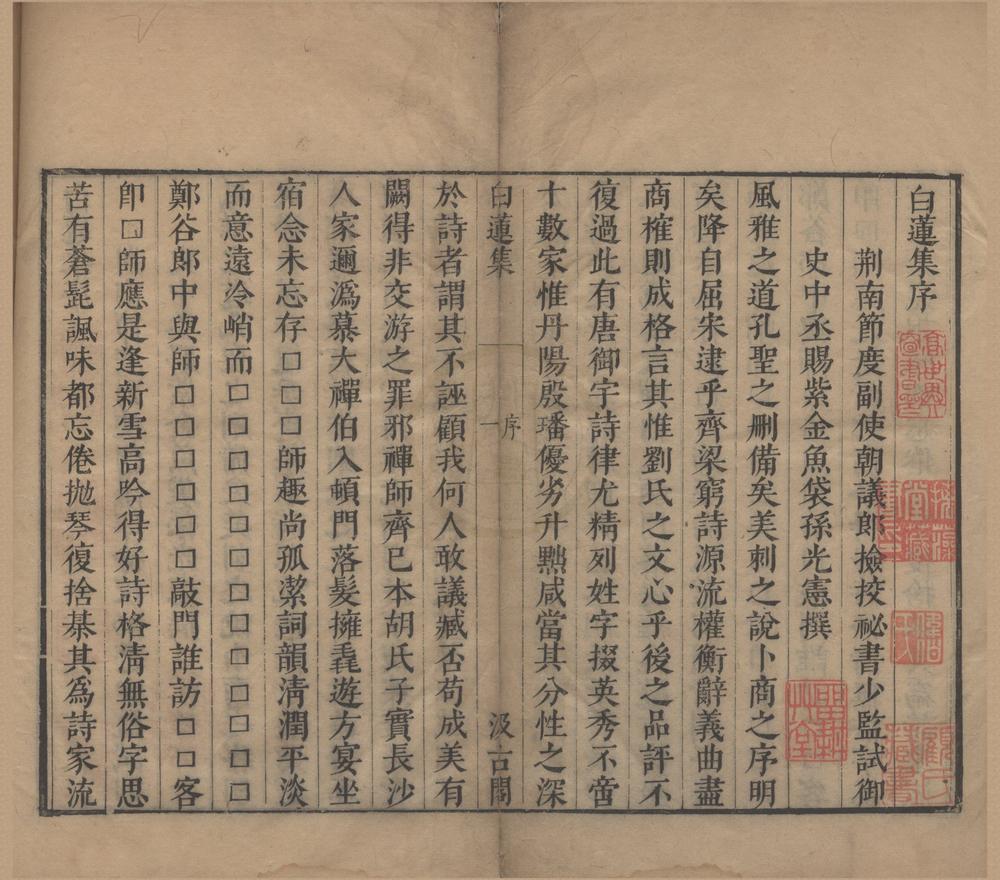 白蓮集序
荆南節度副使朝議郎撿挍祕書少監試御
史中丞賜紫金魚袋孫光憲撰
風雅之道孔聖之刪備矣美刺之說卜商之序明
矣降自屈宋逮乎齊梁窮詩源流權衡辭義曲盡
商榷則成格言其惟劉氏之文心乎後之品評不
復過此有唐御宇詩律尤精列姓字掇英秀不啻
十數家惟丹陽殷璠優劣升黜咸當其分性之深
白蓮集 序 一 汲古閣
於詩者謂其不誣顧我何人敢議臧否苟成美有
闕得非交游之罪邪禪師齊已本胡氏子實長沙
人家邇潙慕大禪伯入頓門落髮擁毳遊方宴坐
宿念未忘存□□□師趣尚孤潔詞韻清潤平淡
而意遠冷峭而□□□□□□□□□□□□□
鄭谷郎中與師□□□□□□敲門誰訪□□客
卽□師應是逢新雪高吟得好詩格清無俗字思
苦有蒼髭諷味都忘倦抛琴復捨棊其為詩家流